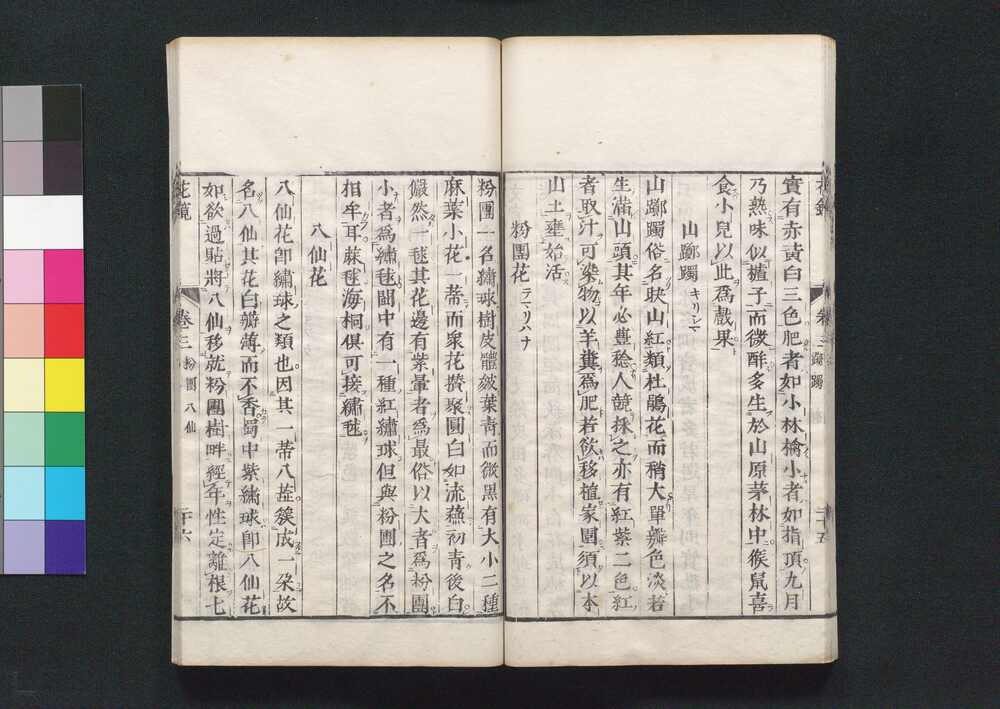 實有赤黃白三色肥者如小林檎小者如指頂九月
乃熟味似樝子而微酢多生於山原茅林中猴鼠喜
食小兒以此爲戲果
山躑躅 キリシマ
山躑躅俗名映山紅類杜鵑花而稍大單瓣色淡若
生滿山頭其年必豐稔人競採之亦有紅紫二色紅
者取汁可染物以羊糞爲肥若欲移植家園須以本
山土壅始活
粉團花 テマリハナ
粉團一名繡球樹皮體皴葉青而微黑有大小二種
麻葉小花一蒂而衆花攢聚圓白如流蘇初青後白
儼然一毬其花邊有紫暈者爲最俗以大者爲粉團
小者爲繡毬閩中有一種紅繡球但與粉團之名不
相牟耳蔴毬海桐俱可接繡毬
八仙花
八仙花卽繡球之類也因其一蒂八蕊簇成一朶故
名八仙其花白瓣薄而不香蜀中紫繡球卽八仙花
如欲過貼將八仙移就粉團樹畔經年性定離根七
卷三 粉團 八仙
二十六